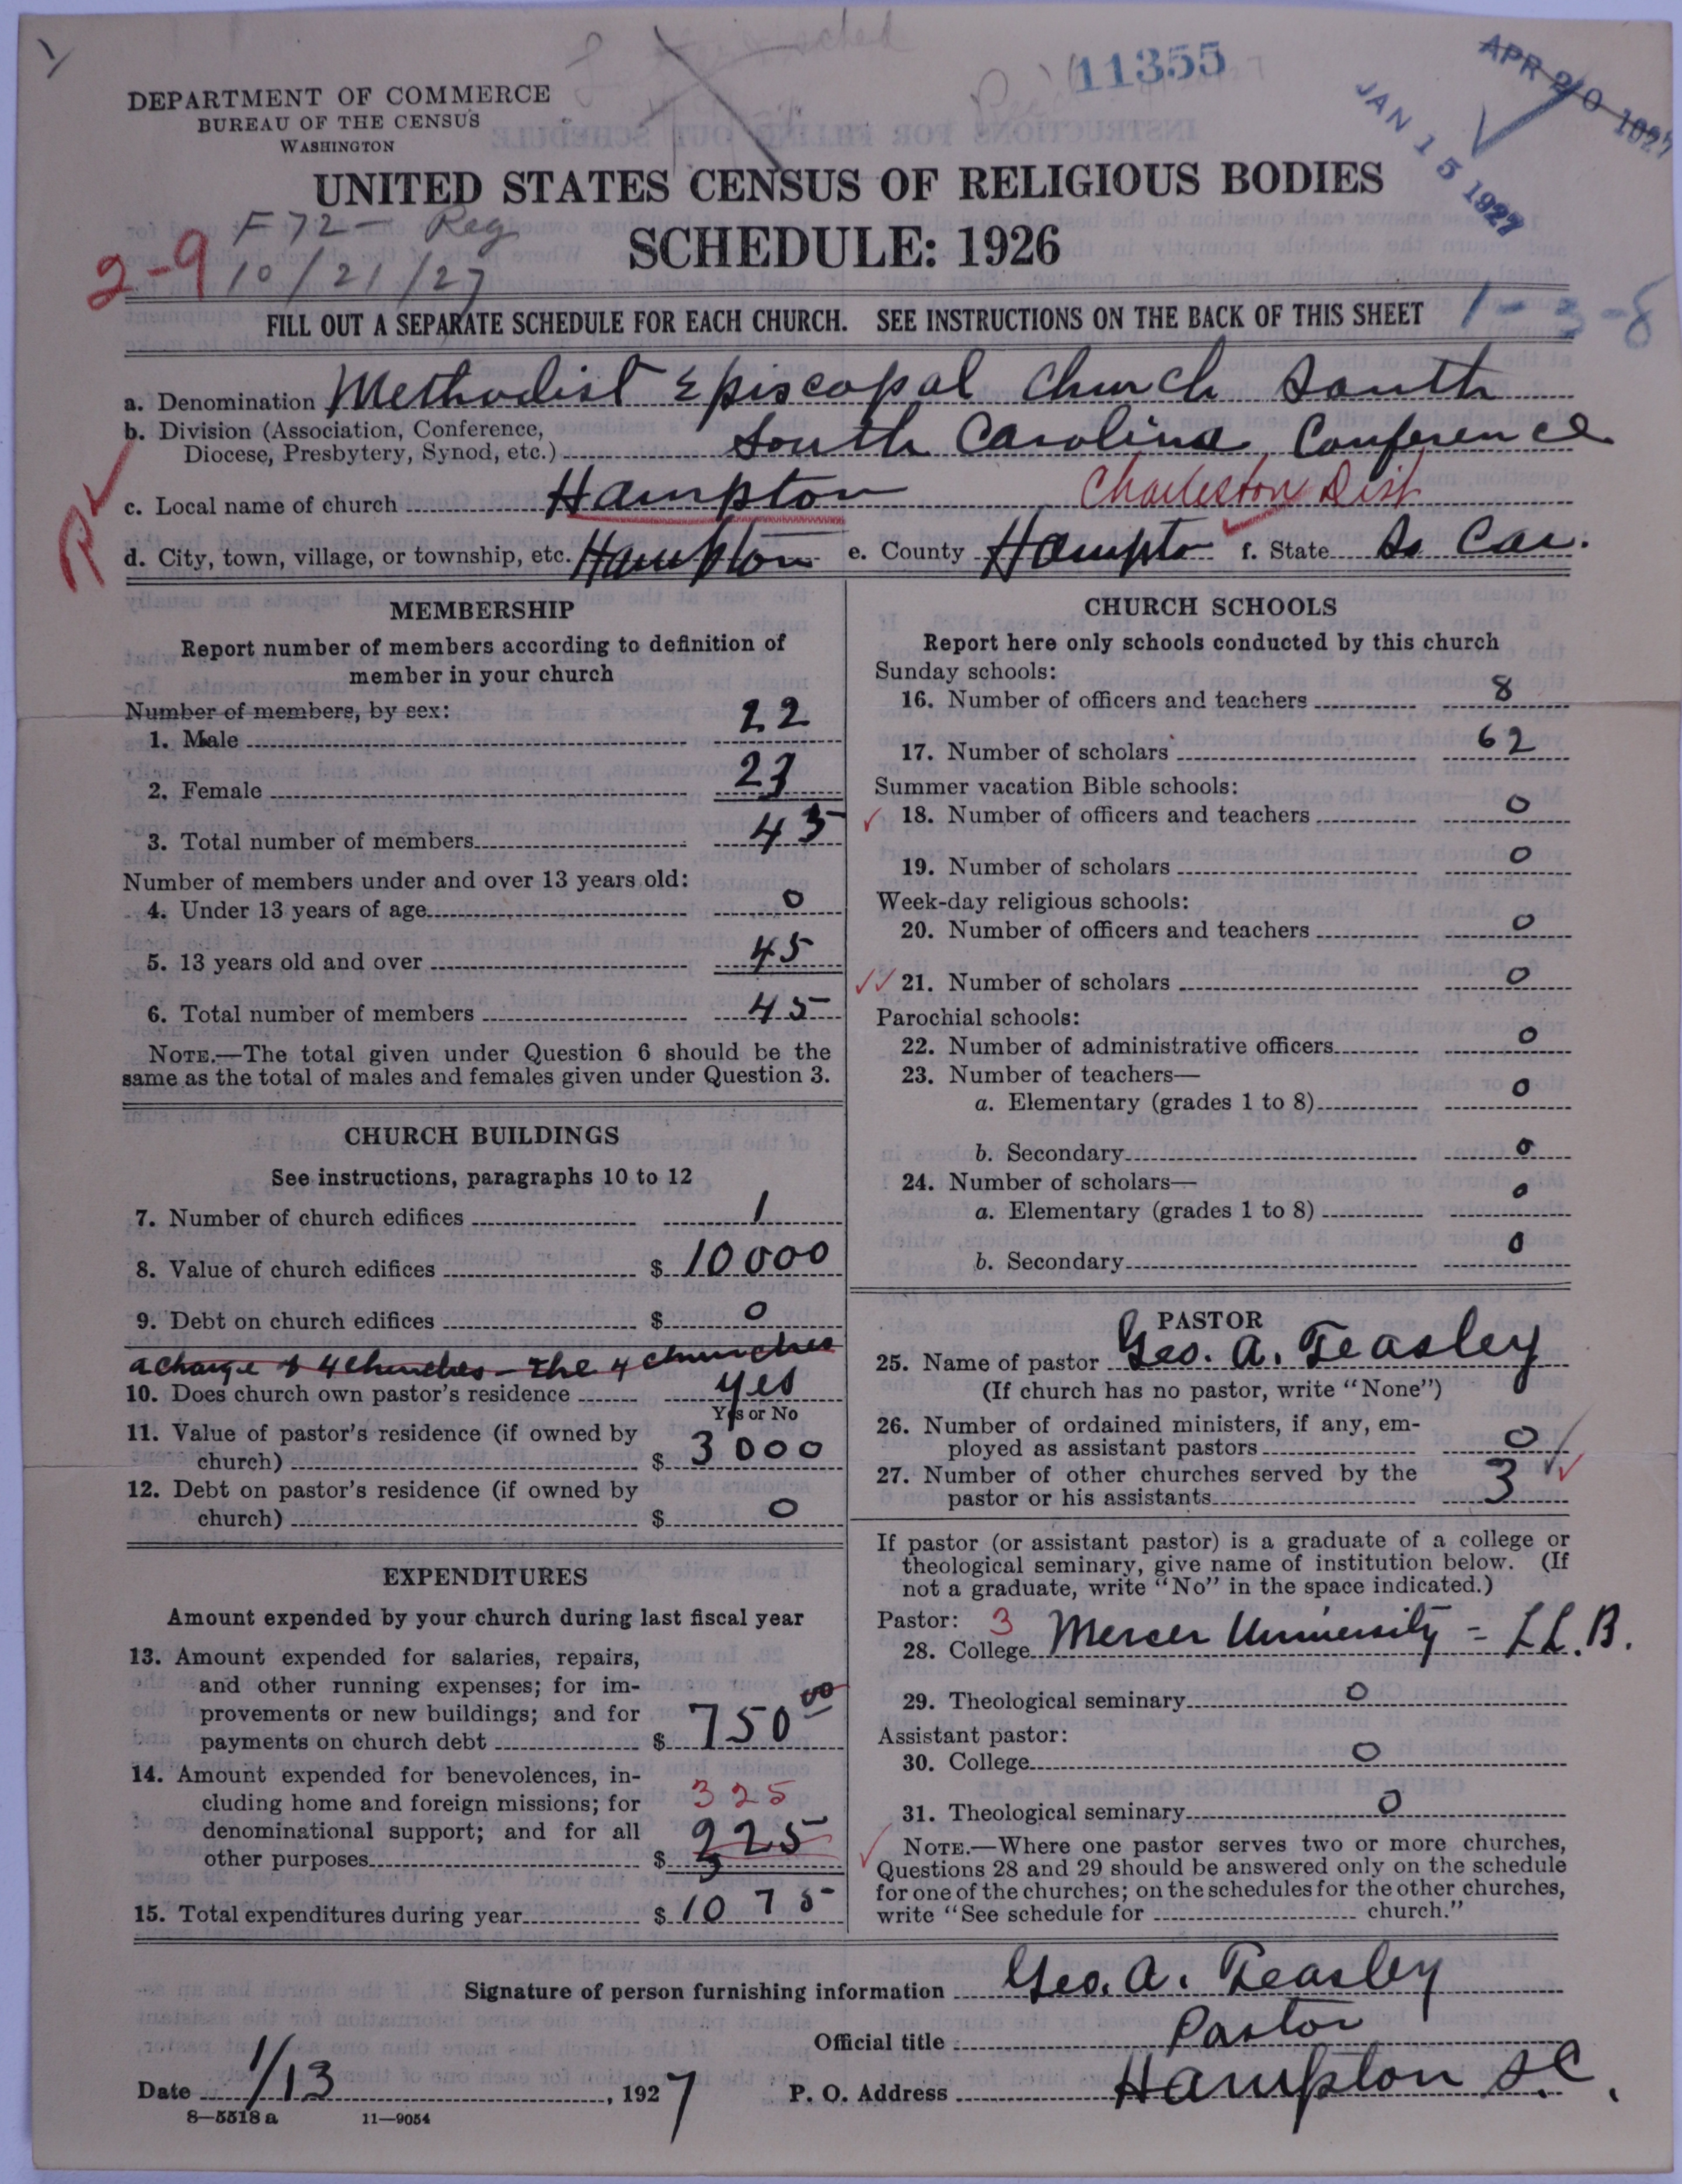 11355
APR 20 1927
JAN 15 1927
DEPARTMENT OF COMMERCE
BUREAU OF THE CENSUS
WASHINGTON
UNITED STATES CENSUS OF RELIGIOUS BODIES
F 72- Reg
SCHEDULE: 1926
2-9 10/21/27
FILL OUT A SEPARATE SCHEDULE FOR EACH CHURCH. SEE INSTRUCTIONS ON THE BACK OF THIS SHEET 1-3-8
a. Denomination Methodist Episcopal Church South
b. Division (Association, Conference,
Diocese, Presbytery, Synod, etc.) South Carolina Conference
c. Local name of church Hampton Charleston Dist
d. City, town, village, or township, etc. Hampton e. County Hampto f. State So Car.
MEMBERSHIP
Report number of members according to definition of
member in your church
Number of members, by sex:
1. Male 22
2. Female 23
3. Total number of members 45
Number of members under and over 13 years old:
4. Under 13 years of age 0
5. 13 years old and over 45
6. Total number of members 45
NOTE.—The total given under Question 6 should be the
same as the total of males and females given under Question 3.
CHURCH BUILDINGS
See instructions, paragraphs 10 to 12
7. Number of church edifices 1
8. Value of church edifices $ 10000
9. Debt on church edifices $ 0
a charge of 4 churches - the 4 churches
10. Does church own pastor's residence yes
Yes or No
11. Value of pastor's residence (if owned by
church) $ 3000
12. Debt on pastor's residence (if owned by
church) $ 0
EXPENDITURES
Amount expended by your church during last fiscal year
13. Amount expended for salaries, repairs,
and other running expenses; for im-
provements or new buildings; and for
payments on church debt $ 750 00
14. Amount expended for benevolences, in-
cluding home and foreign missions; for 325
denominational support; and for all
other purposes $ 325
15. Total expenditures during year $ 1075
CHURCH SCHOOLS
Report here only schools conducted by this church
Sunday schools:
16. Number of officers and teachers 8
17. Number of scholars 62
Summer vacation Bible schools:
18. Number of officers and teachers 0
19. Number of scholars 0
Week-day religious schools:
20. Number of officers and teachers 0
21. Number of scholars 0
Parochial schools:
22. Number of administrative officers 0
23. Number of teachers—
a. Elementary (grades 1 to 8) 0
b. Secondary 0
24. Number of scholars—
a. Elementary (grades 1 to 8) 0
b. Secondary 0
PASTOR
25. Name of pastor Geo. A. Teasley
(If church has no pastor, write "None")
26. Number of ordained ministers, if any, em-
ployed as assistant pastors 0
27. Number of other churches served by the
pastor or his assistants 3
If pastor (or assistant pastor) is a graduate of a college or
theological seminary, give name of institution below. (If
not a graduate, write "No" in the space indicated.)
Pastor: 3
28. College Mercer University = LL.B.
29. Theological seminary 0
Assistant pastor:
30. College 0
31. Theological seminary 0
NOTE.—Where one pastor serves two or more churches,
Questions 28 and 29 should be answered only on the schedule
for one of the churches; on the schedules for the other churches,
write "See schedule for church."
Signature of person furnishing information Geo. A. Teasley
Official title Pastor
Date 1/13, 1927 P. O. Address Hampton S.C.
8—5518 a 11—9054